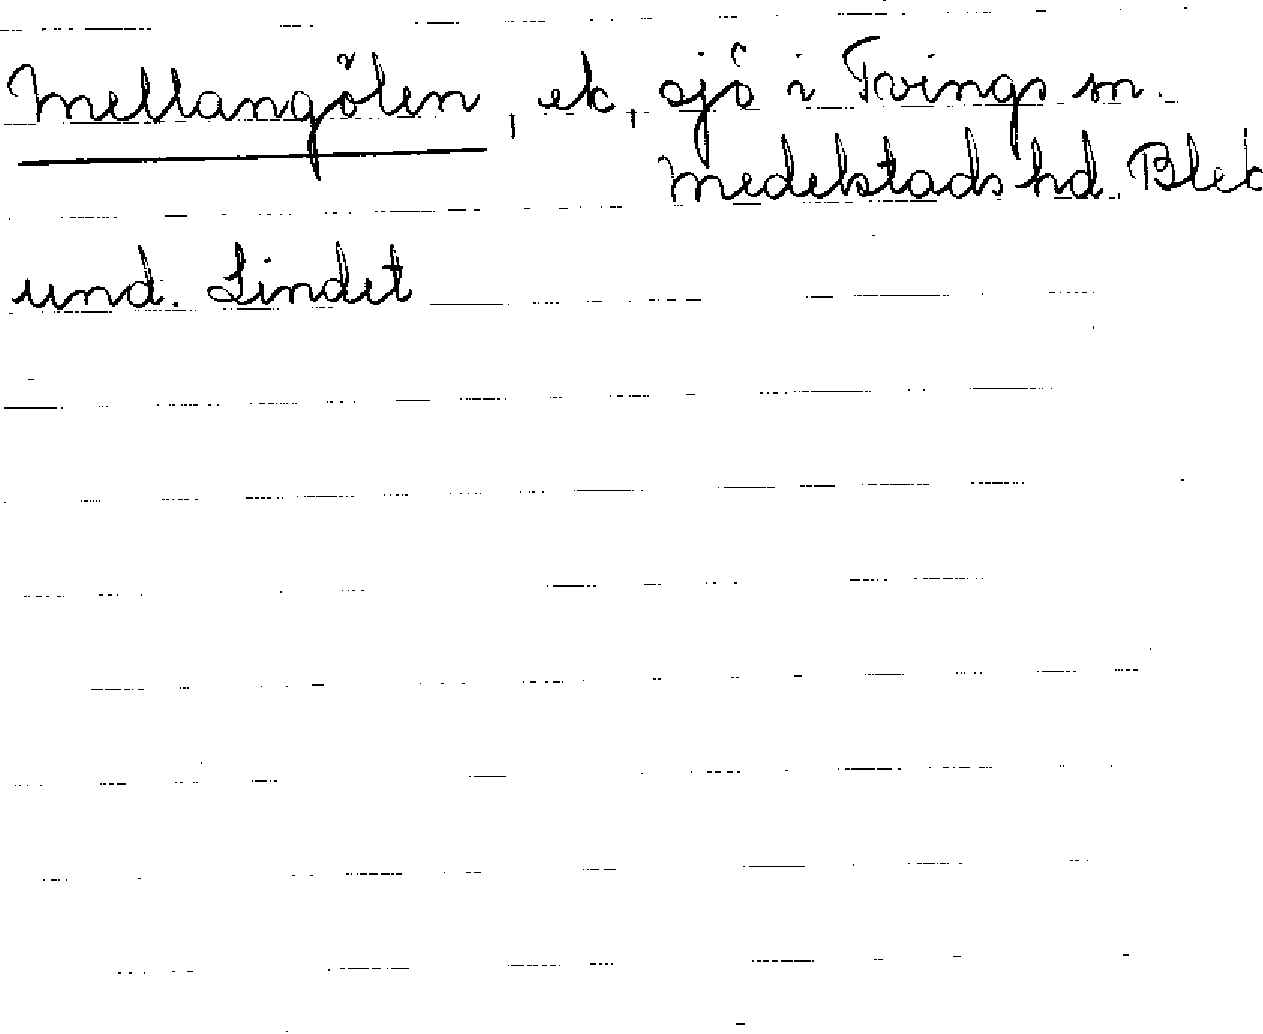 Mellangölen, ek, sjö i Tvings sn.
Medelstads hd. Blek
und. Lindet